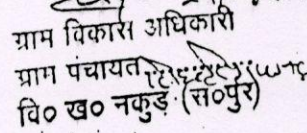 ग्राम विकास अधिकारी
ग्राम पंचायत
वि० ख० नकुड़ (स०पुर)